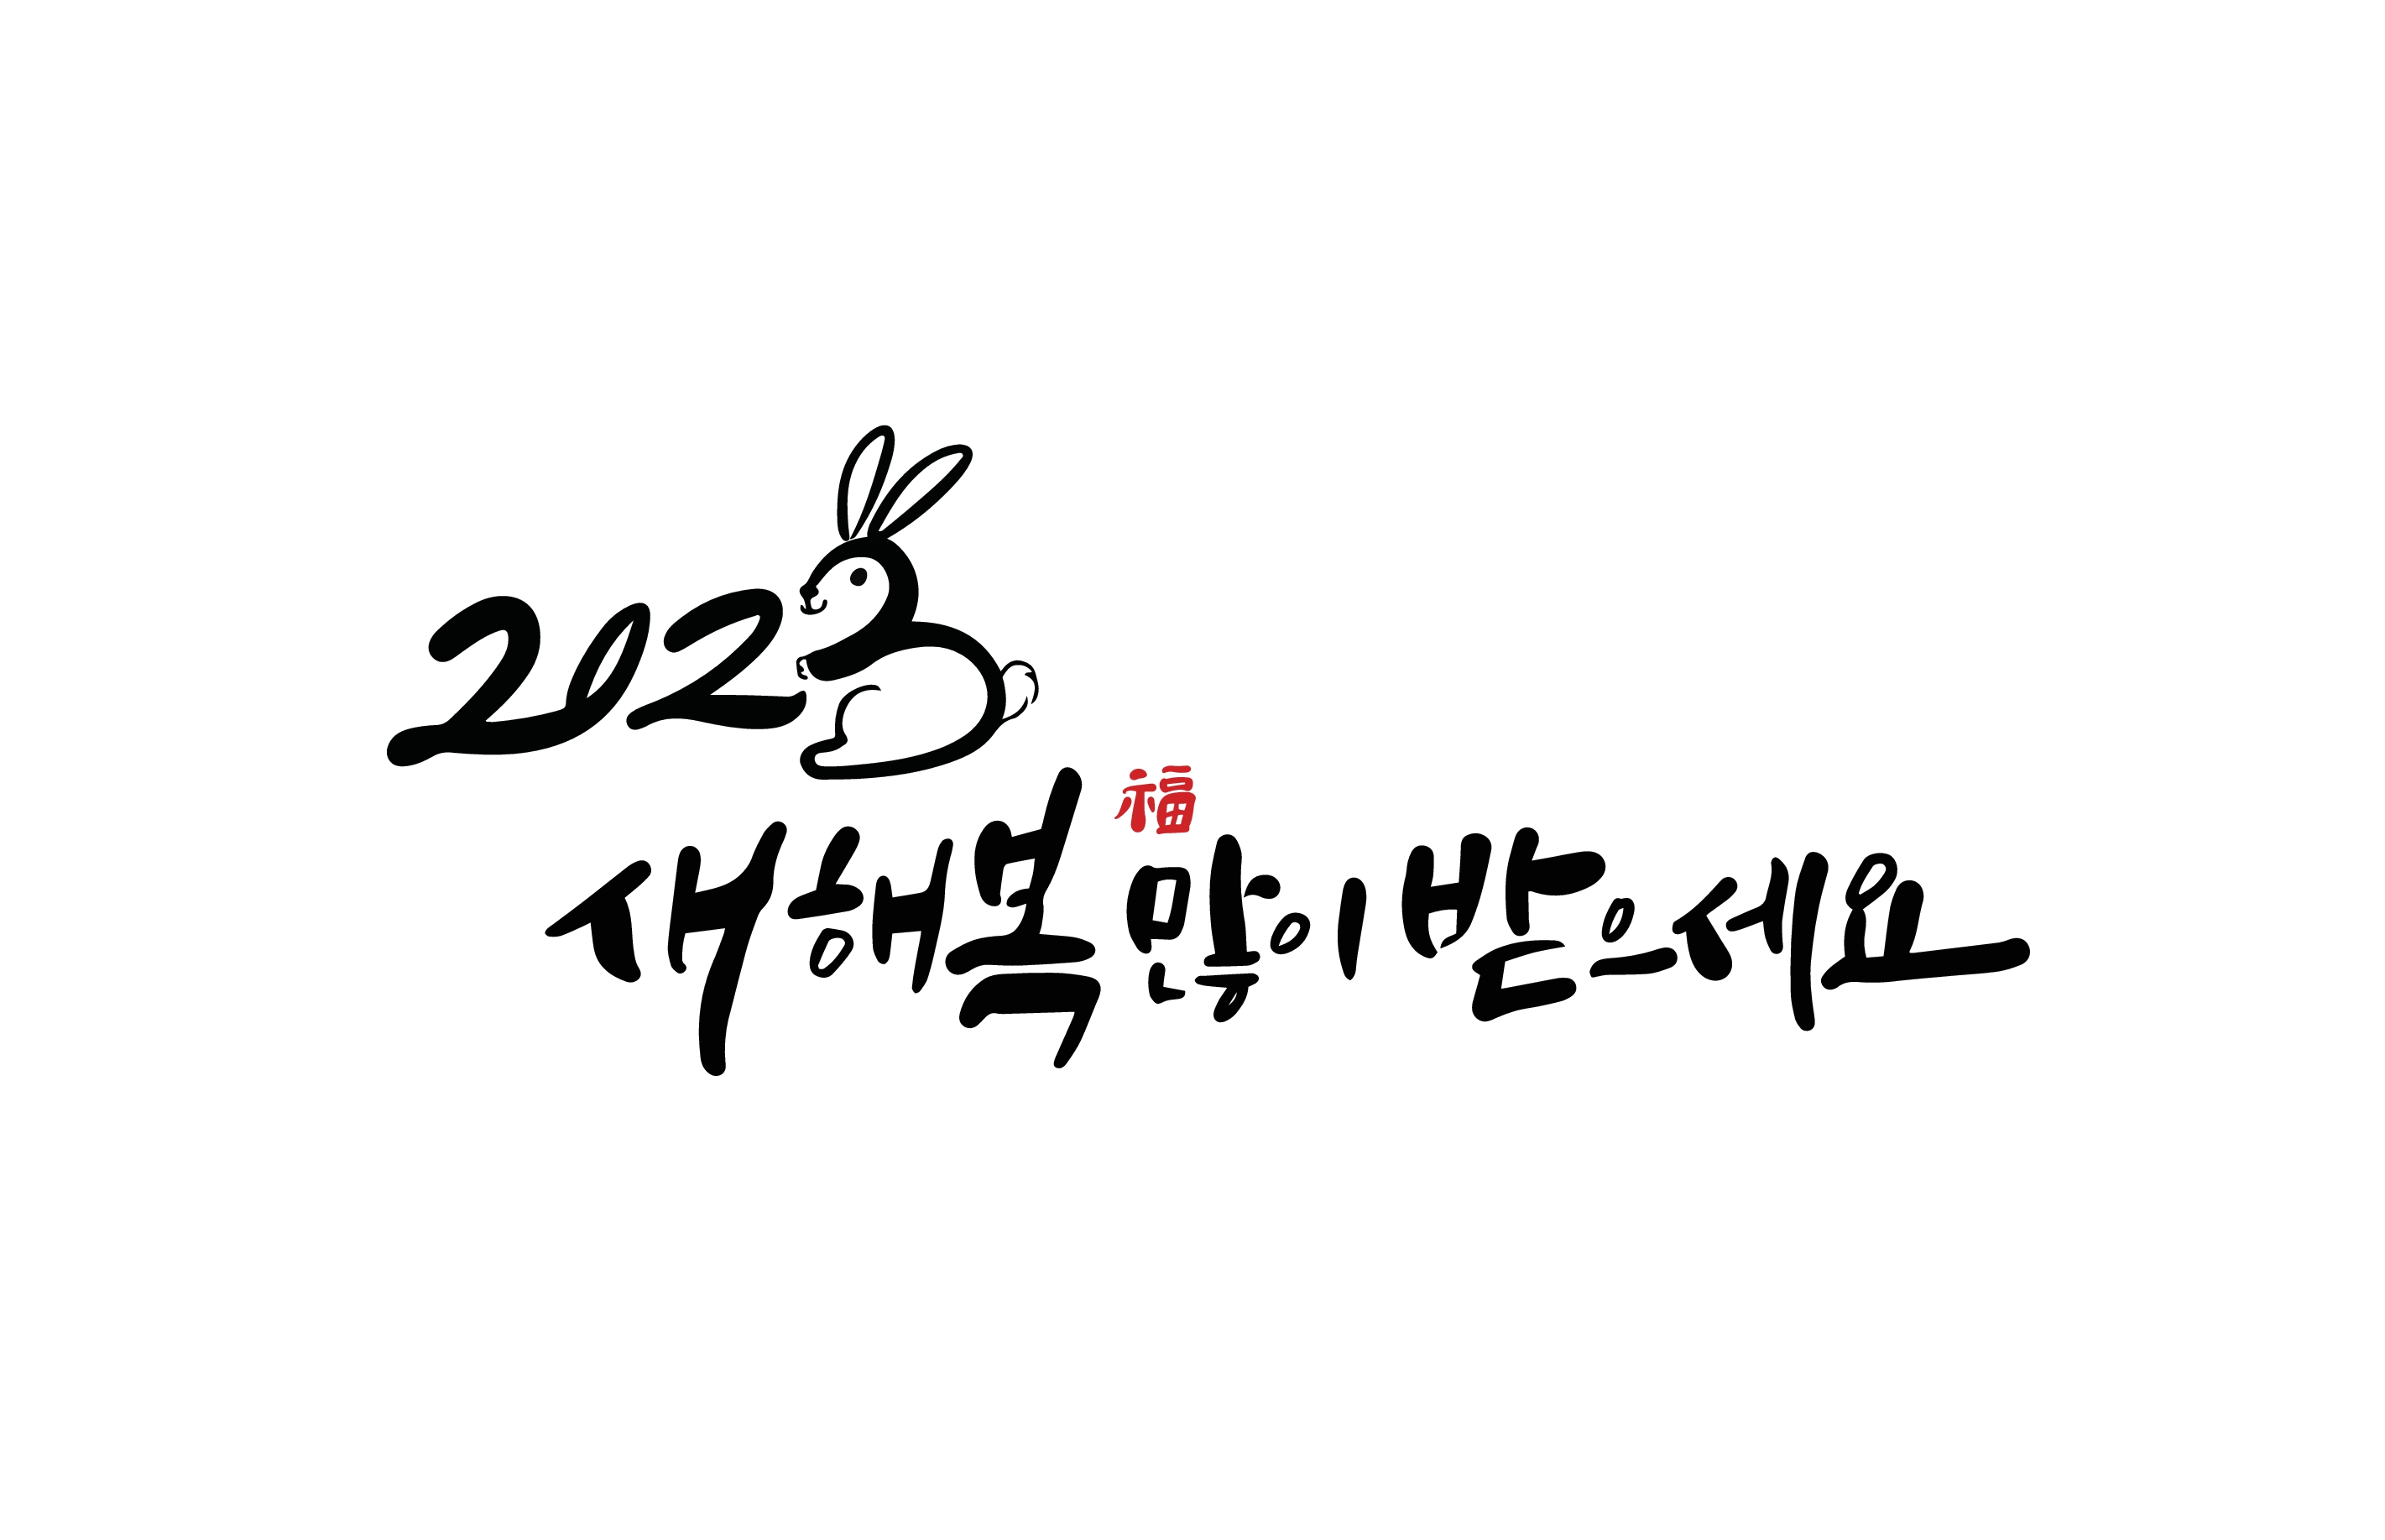 2023
福
새해 복 많이 받으세요